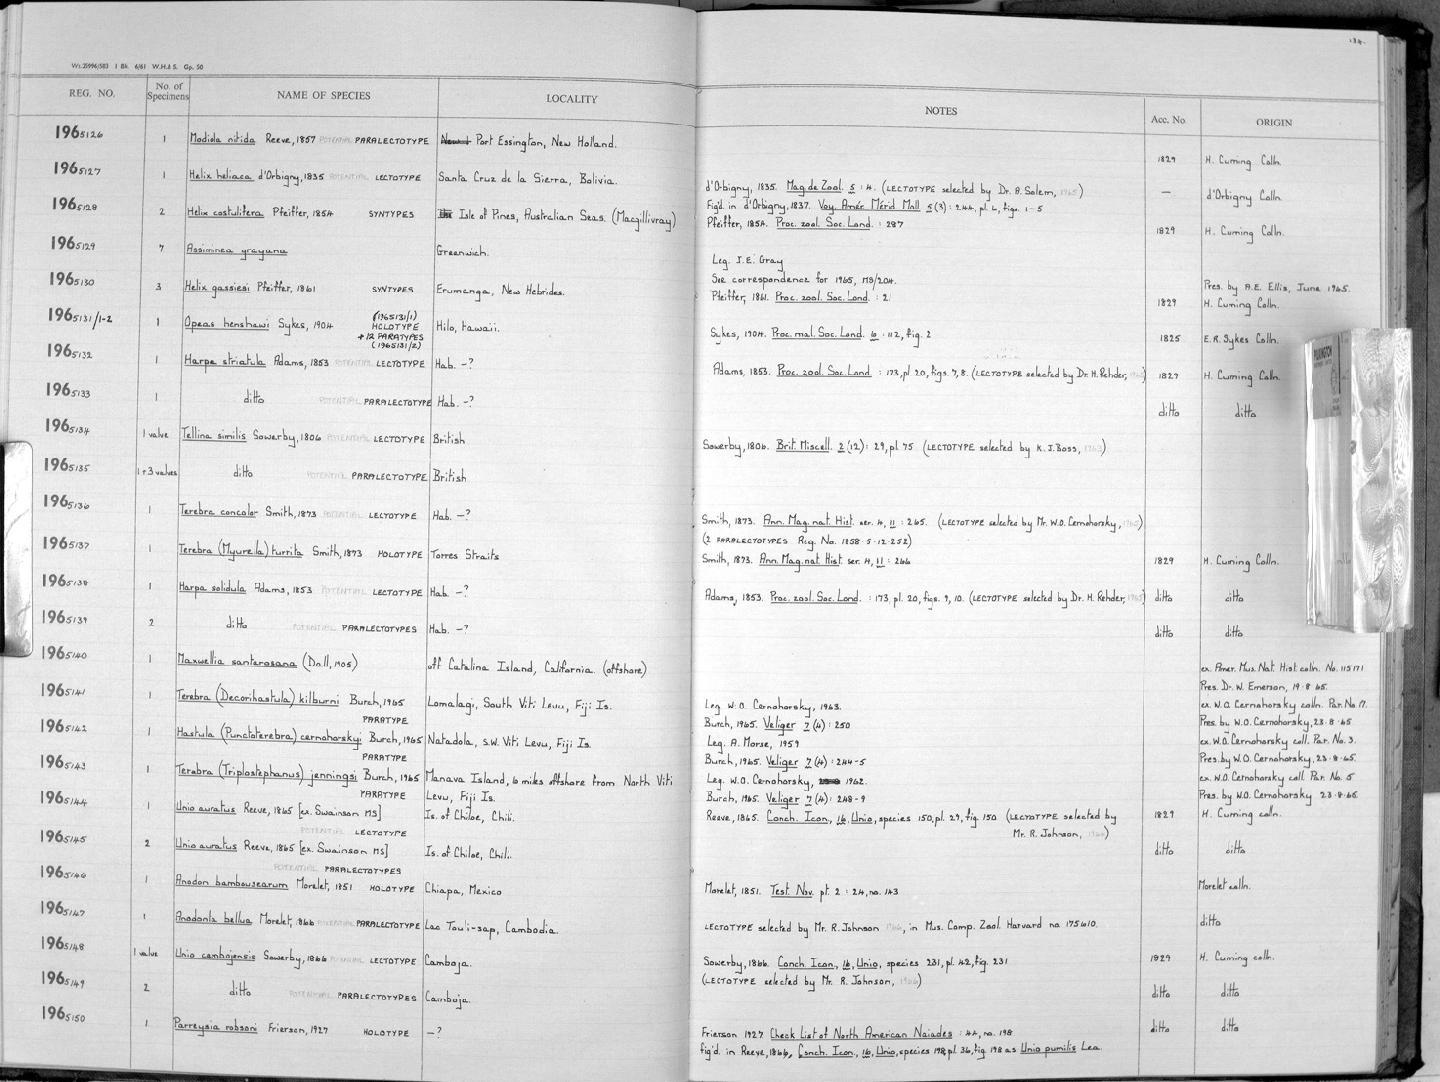 Wt.25996/583 1 Bk. 6/61 W.H.& S. Gp. 50
134.
REG. NO. No. of Specimens NAME OF SPECIES LOCALITY NOTES Acc. No. ORIGIN
1965126 1 Modiola nitida Reeve, 1857 POTENTIAL PARALECTOTYPE Port Essington, New Holland. 1829 H. Cuming Colln.
1965127 1 Helix heliaca d'Orbigny, 1835 POTENTIAL LECTOTYPE Santa Cruz de la Sierra, Bolivia. d'Orbigny, 1835. Mag. de Zool. 5 : 4. (LECTOTYPE selected by Dr. A. Solem, 1965) — d'Orbigny Colln.
Fig'd. in d'Orbigny, 1837. Voy. Amér. Mérid Moll 5 (3) : 244, pl. 2, figs. 1-5
1965128 2 Helix costulifera Pfeiffer, 1854 SYNTYPES Isle of Pines, Australian Seas. (Macgillivray) Pfeiffer, 1854. Proc. zool. Soc. Lond. : 287 1829 H. Cuming Colln.
1965129 7 Assiminea grayana Greenwich. Leg. J.E. Gray
See correspondence for 1965, MS/204. Pres. by A.E. Ellis, June 1965.
1965130 3 Helix gassiesi Pfeiffer, 1861 SYNTYPES Erumanga, New Hebrides. Pfeiffer, 1861. Proc. zool. Soc. Lond. : 21 1829 H. Cuming Colln.
1965131/1-2 1 Opeas henshawi Sykes, 1904 (1965131/1) HOLOTYPE + 12 PARATYPES (1965131/2) Hilo, Hawaii. Sykes, 1904. Proc. mal. Soc. Lond. 6 : 112, fig. 2 1825 E.R. Sykes Colln.
1965132 1 Harpa striatula Adams, 1853 POTENTIAL LECTOTYPE Hab. -? Adams, 1853. Proc. zool. Soc. Lond : 173, pl 20, figs. 7, 8. (LECTOTYPE selected by Dr. H. Rehder, 1829 H. Cuming Colln.
1965133 1 ditto POTENTIAL PARALECTOTYPE Hab. -? ditto ditto
1965134 1 valve Tellina similis Sowerby, 1806 POTENTIAL LECTOTYPE British Sowerby, 1806. Brit. Miscell. 2 (12) : 29, pl. 75 (LECTOTYPE selected by K.J. Boss, 1963)
1965135 1+3 valves ditto POTENTIAL PARALECTOTYPE British
1965136 1 Terebra concolor Smith, 1873 POTENTIAL LECTOTYPE Hab. -? Smith, 1873. Ann. Mag. nat. Hist. ser. 4, 11 : 265. (LECTOTYPE selected by Mr. W.O. Cernohorsky, 1965)
(2 PARALECTOTYPES Reg. No. 1858.5.12.252)
1965137 1 Terebra (Myurella) turrita Smith, 1873 HOLOTYPE Torres Straits Smith, 1873. Ann. Mag. nat. Hist. ser. 4, 11 : 266 1829 H. Cuming Colln.
1965138 1 Harpa solidula Adams, 1853 POTENTIAL LECTOTYPE Hab. -? Adams, 1853. Proc. zool. Soc. Lond. : 173, pl. 20, figs. 9, 10. (LECTOTYPE selected by Dr. H. Rehder, 1965) ditto ditto
1965139 2 ditto POTENTIAL PARALECTOTYPES Hab. -? ditto ditto
1965140 1 Maxwellia santarosana (Dall, 1905) off Catalina Island, California (offshore) ex. Amer. Mus. Nat Hist. colln. No. 115171
Pres. Dr. W. Emerson, 19.8.65.
1965141 1 Terebra (Decorihastula) kilburni Burch, 1965 PARATYPE Lomalagi, South Viti Levu, Fiji Is. Leg. W.O. Cernohorsky, 1963. ex. W.O. Cernohorsky colln. Par. No 17.
Burch, 1965. Veliger 7 (4) : 250 Pres. by W.O. Cernohorsky, 23.8.65
1965142 1 Hastula (Punctoterebra) cernohorskyi Burch, 1965 PARATYPE Natadola, S.W. Viti Levu, Fiji Is. Leg. A. Morse, 1959 ex. W.O. Cernohorsky coll. Par. No. 3.
Burch, 1965. Veliger 7 (4) : 244-5 Pres. by W.O. Cernohorsky, 23.8.65.
1965143 1 Terebra (Triplostephanus) jenningsi Burch, 1965 PARATYPE Manava Island, 6 miles offshore from North Viti Levu, Fiji Is. Leg. W.O. Cernohorsky, 1962. ex. W.O. Cernohorsky coll. Par. No. 5
Burch, 1965. Veliger 7 (4) : 248-9 Pres. by W.O. Cernohorsky 23.8.65.
1965144 1 Unio auratus Reeve, 1865 [ex. Swainson MS] POTENTIAL LECTOTYPE Is. of Chiloe, Chili. Reeve, 1865. Conch. Icon., 16, Unio, species 150, pl. 29, fig. 150 (LECTOTYPE selected by Mr. R. Johnson, 1966) 1829 H. Cuming colln.
1965145 2 Unio auratus Reeve, 1865 [ex. Swainson MS] POTENTIAL PARALECTOTYPES Is. of Chiloe, Chili. ditto ditto
1965146 1 Anodon bambousearum Morelet, 1851 HOLOTYPE Chiapa, Mexico Morelet, 1851. Test. Nov. pt. 2 : 24, no. 143 Morelet colln.
1965147 1 Anodonta bellua Morelet, 1866 POTENTIAL PARALECTOTYPE Lac Touli-sap, Cambodia. LECTOTYPE selected by Mr. R. Johnson 1966, in Mus. Comp. Zool. Harvard no. 175610. ditto
1965148 1 valve Unio cambojensis Sowerby, 1866 POTENTIAL LECTOTYPE Camboja. Sowerby, 1866. Conch. Icon., 16, Unio, species 231, pl. 42, fig. 231 1829 H. Cuming colln.
(LECTOTYPE selected by Mr. R. Johnson, 1966)
1965149 2 ditto POTENTIAL PARALECTOTYPES Camboja. ditto ditto
1965150 1 Parreysia robsoni Frierson, 1927 HOLOTYPE -? Frierson 1927 Check List of North American Naiades : 44, no. 198 ditto ditto
fig'd. in Reeve, 1866, Conch. Icon., 16, Unio, species 198, pl. 36, fig. 198 as Unio pumilis Lea.